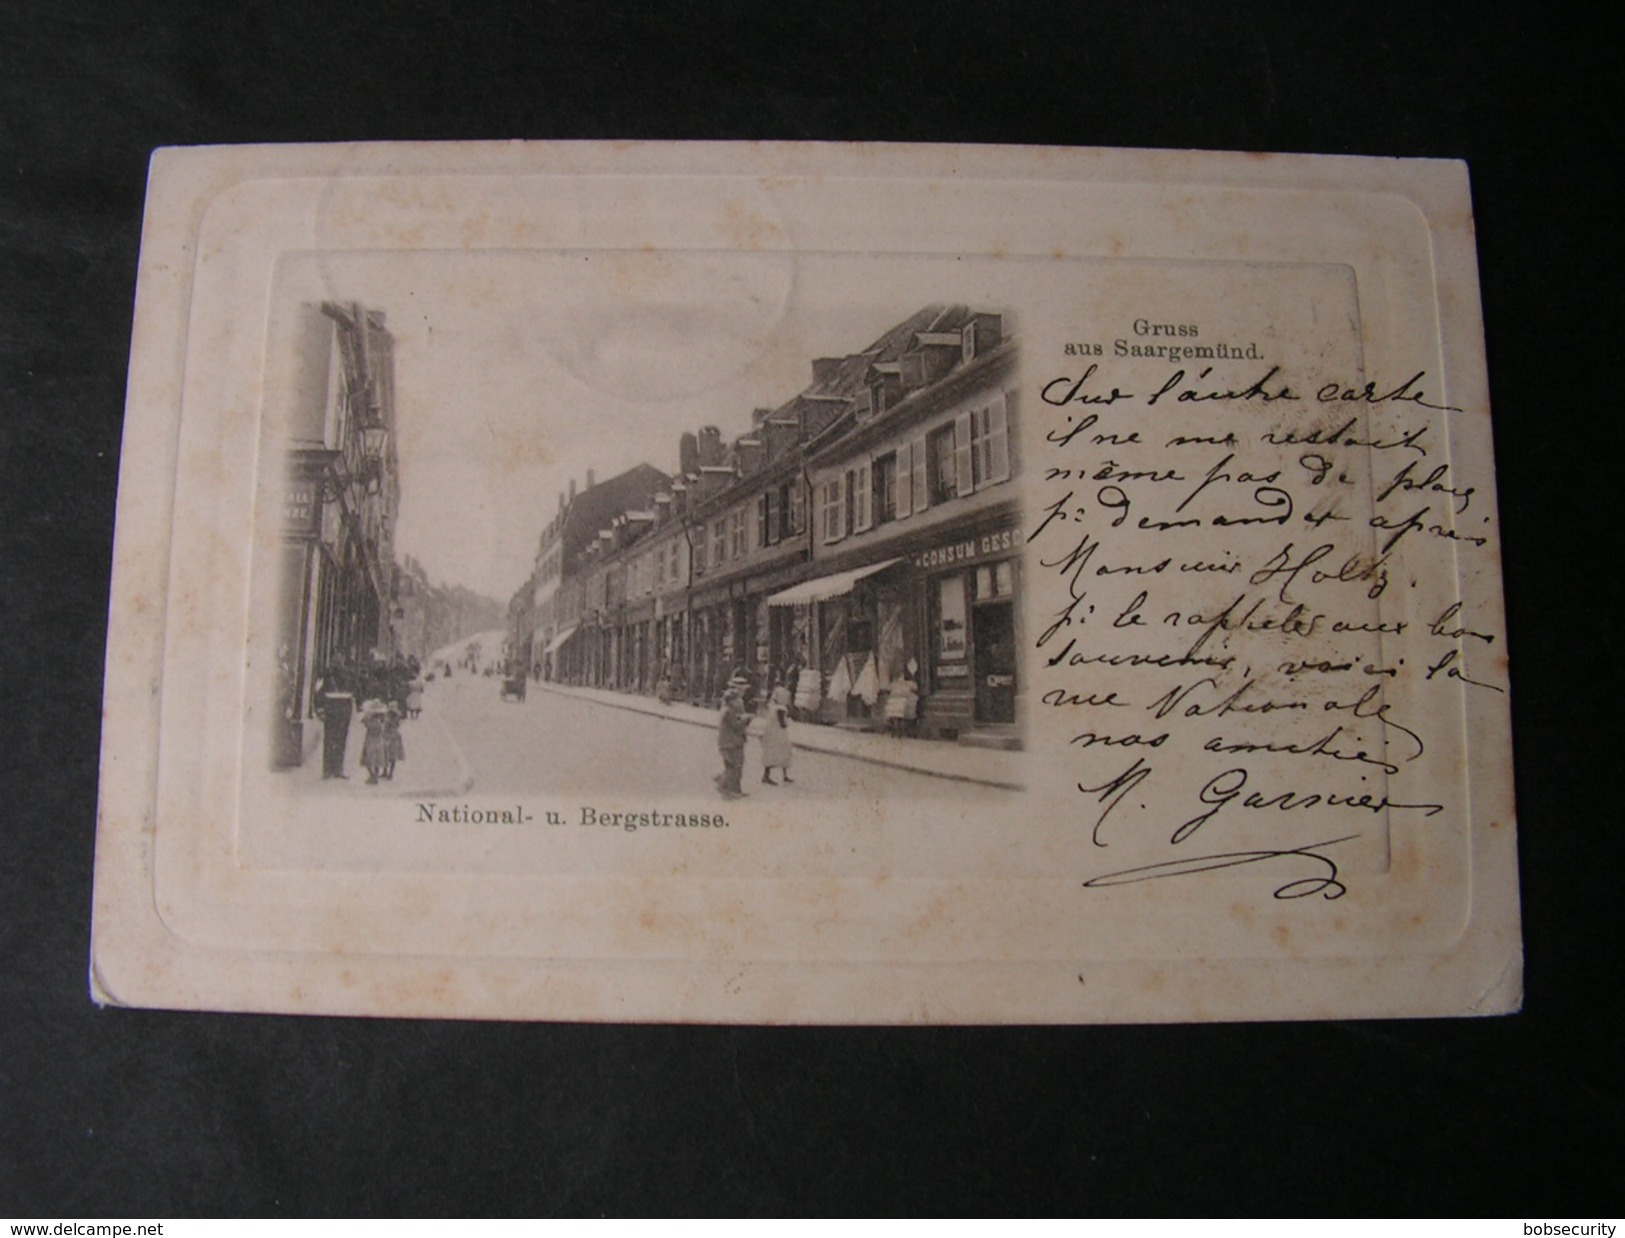 Gruss
aus Saargemünd.
Sur l'autre carte
il ne me restait
même pas de place
pr demander après
Monsieur Holtz.
pr le rappeler aux bons
souvenirs, voici la
rue Nationale
nos amitiés
M. Garnier
CONSUM GESC
National- u. Bergstrasse.
www.delcampe.net
bobsecurity